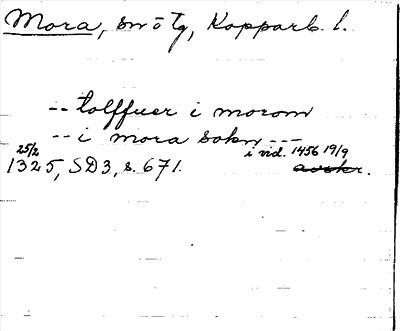 Mora, sn o tg, Kopparb. l.
-- tolffuer i morom
-- i mora sokn ---
25/2 i vid. 1456 19/9
1325, SD3, s. 671. avskr.